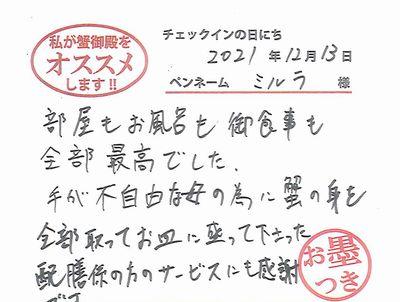 私が蟹御殿を
オススメ
します!!
チェックインの日にち
2021 年 12 月 13 日
ペンネーム ミルラ 様
部屋もお風呂も御食事も
全部最高でした.
手が不自由な母の為に蟹の身を
全部取ってお皿に盛って下さった
配膳係の方のサービスにも感謝
です
お墨
つき